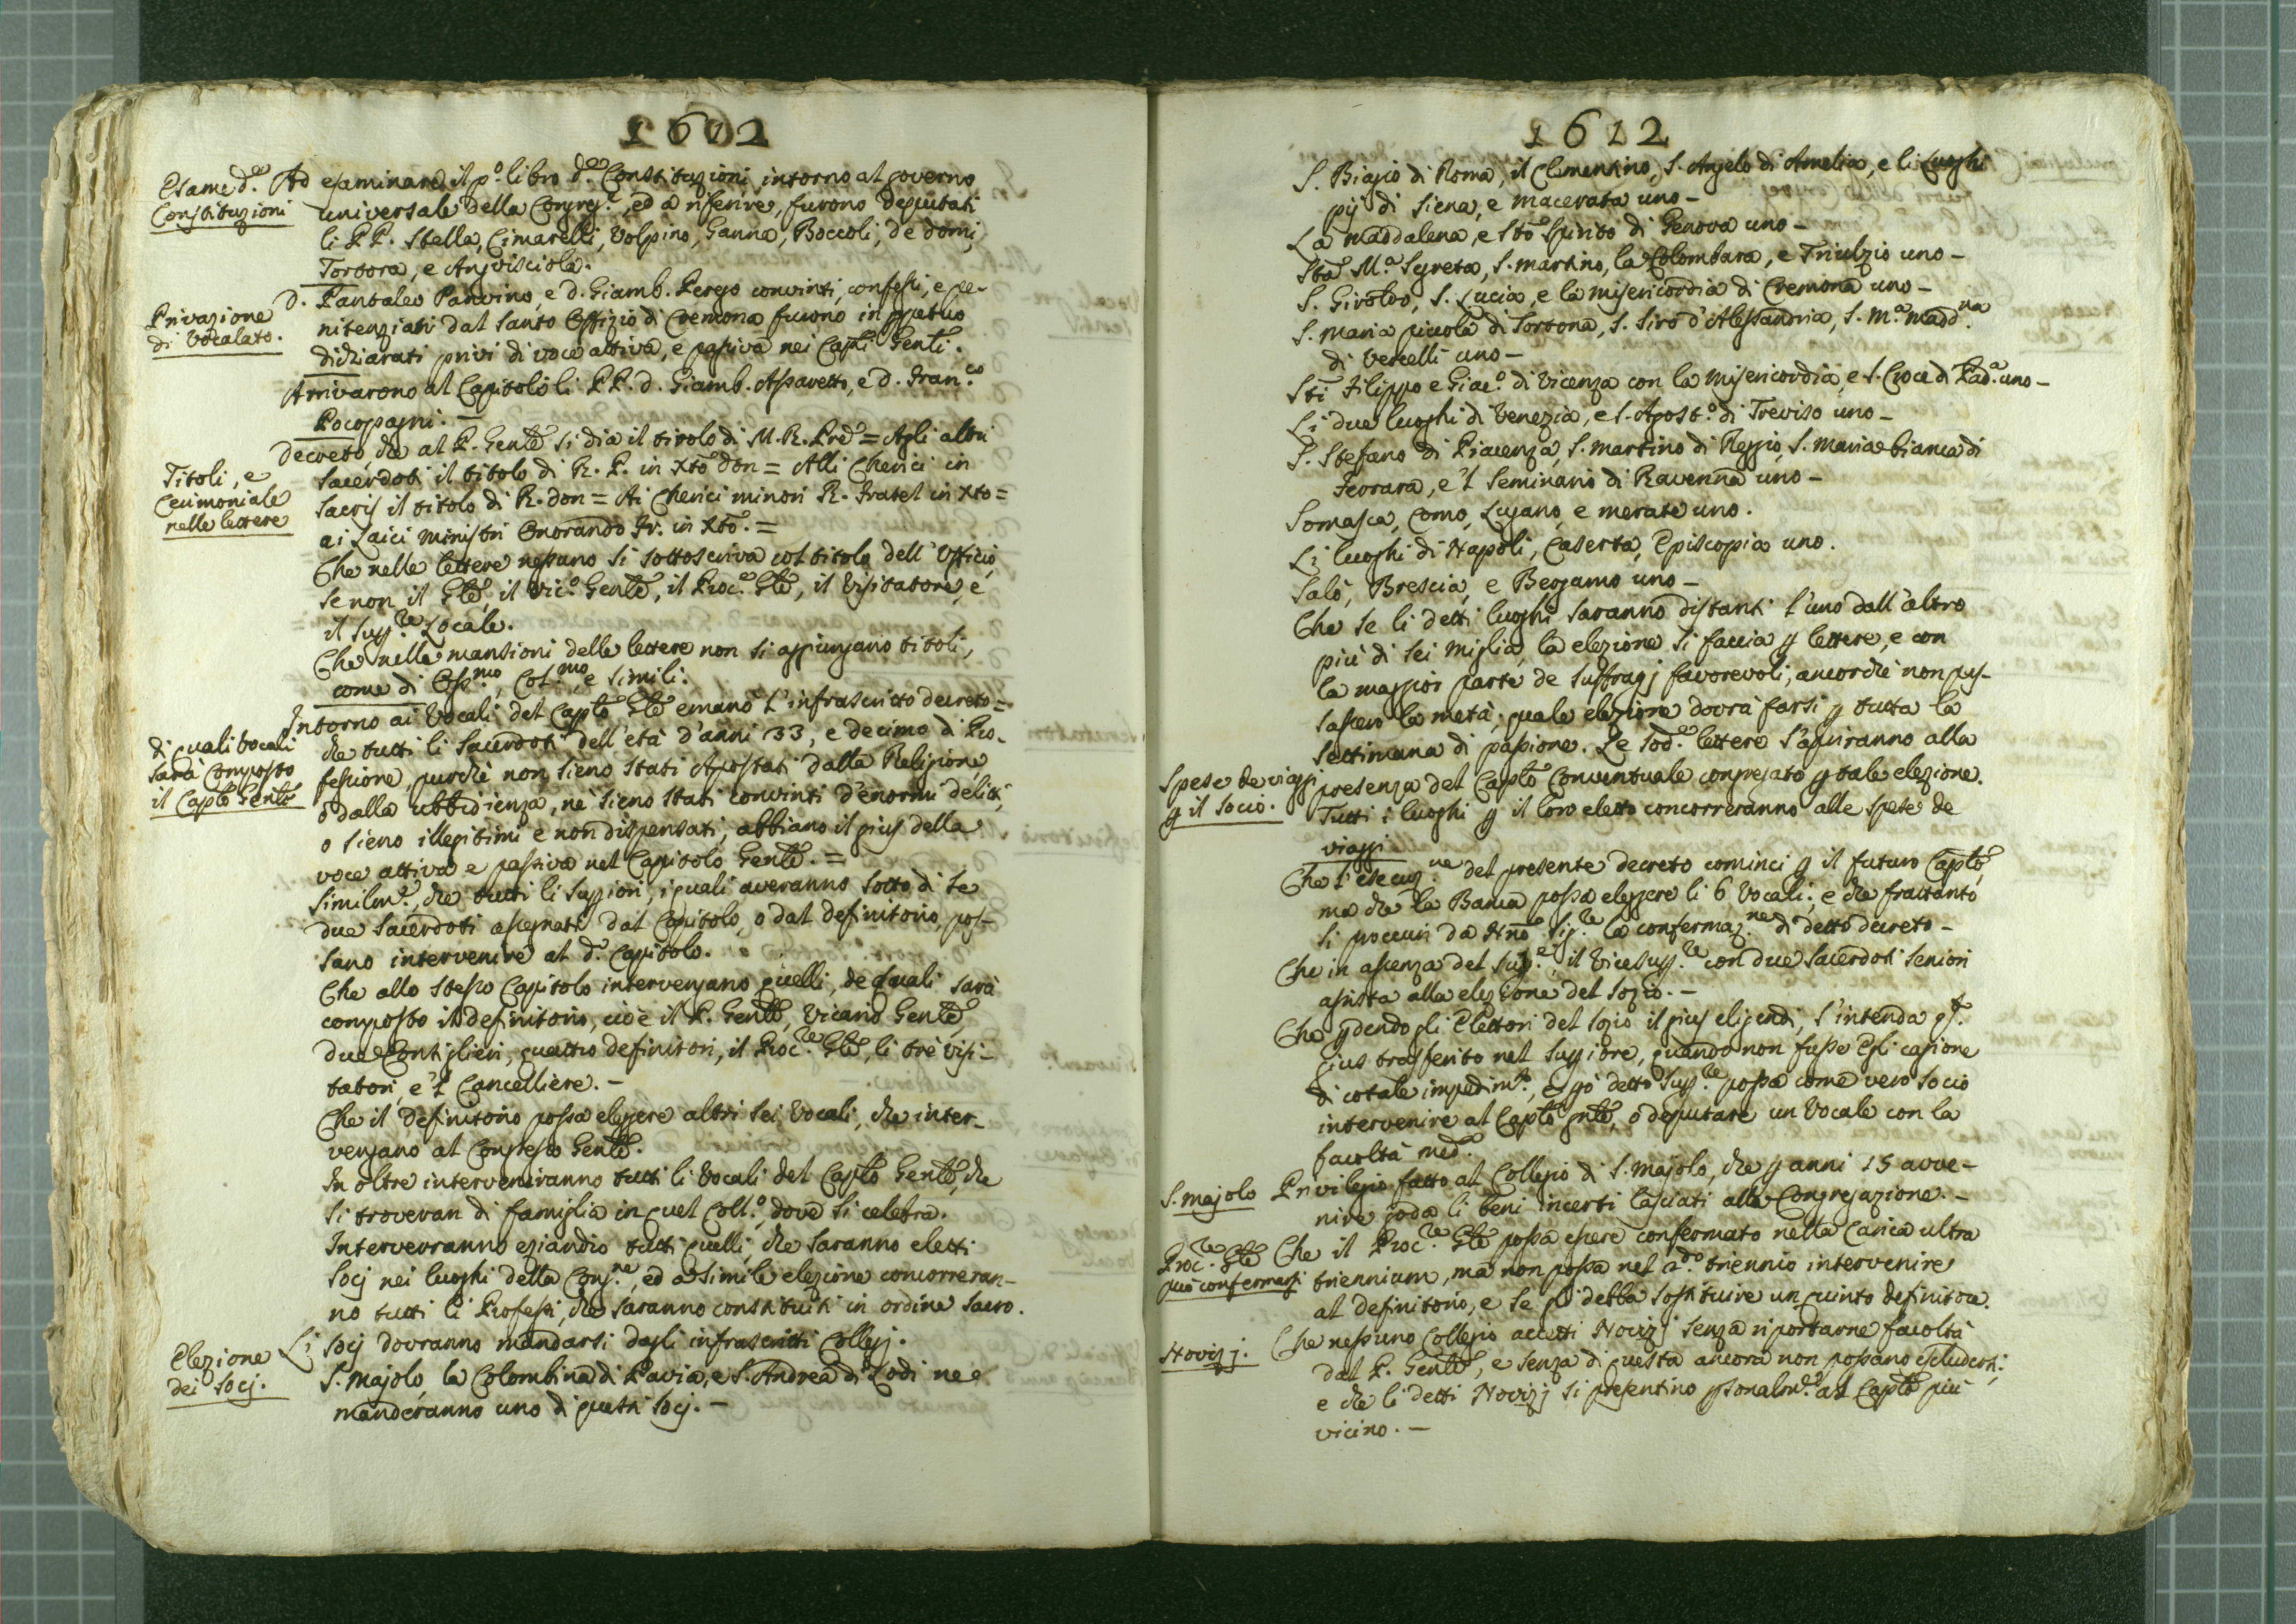 1612
Esame d.e
Constituzioni
Ad esaminare il p.o libro d.e Constituzioni intorno al governo
universale della Congreg.e, ed a riferire, furono deputati
li PP. Stella, Cimarelli, Volpino, Ganna, Boccoli, de domi,
Tortora, e Angvisciola.
Privazione
di Vocalato.
D. Pantaleo Panvino, e d. Giamb. Perego convinti, confessi, e pe-
nitenziati dal Santo Offizio di Cremona furono in ppetuo
dichiarati privi di voce attiva, e passiva nei Capli Genli.
Arrivarono al Capitolo li PP. d. Giamb. Assavetto, e d. Fran.co
Pocopagni. —
Titoli, e
Cerimoniale
nelle lettere
Decreto, che al P. Genle si dia il titolo di M. R. Pre = Agli altri
Sacerdoti il titolo di R. P. in Xto don = Alli Cherici in
Sacris il titolo di R. don = Ai Cherici minori R. Fratel in Xto =
ai Laici ministri Onorando Fr. in Xto. =
Che nelle lettere nessuno si sottoscriva col titolo dell'Officio,
se non il Gle, il Vic.o Genle, il Proc.e Gle, il Visitatore, e
il Supp.re Locale.
Che nelle mansioni delle lettere non si aggiungano titoli,
come di Oss.mo, Col.mo, e simili.
di quali vocali
sarà composto
il Caplo Genle
Intorno ai Vocali del Caplo Gle emanò l'infrascritto decreto =
che tutti li Sacerdoti dell'età d'anni 33, e decimo di Pro-
fessione, purchè non sieno stati Apostati dalla Religione,
o dalla ubbidienza, nè sieno stati convinti d'enormi delitti,
o sieno illegitimi e non dispensati, abbiano il gius della
voce attiva e passiva nel Capitolo Genle. =
Similm.e, che tutti li Suppiori, i quali averanno sotto di se
due Sacerdoti assegnati dal Capitolo, o dal definitorio, pos-
sano intervenire al d.o Capitolo.
Che allo stesso Capitolo intervengano quelli, de quali sarà
composto il definitorio, cioè il P. Genle, Vicario Genle,
due Consiglieri, quattro definitori, il Proc.re Gle, li tre visi-
tatori, e'l Cancelliere. —
Che il definitorio possa eleggere altri sei Vocali, che inter-
vengano al Congresso Genle.
In oltre interveniranno tutti li Vocali del Caplo Genle, che
si troveran di famiglia in quel Coll.o, dove si celebra.
Interverranno eziandio tutti quelli, che saranno eletti
Socj nei luoghi della Cong.ne, ed a simile elezione concorreran-
no tutti li Professi, che saranno constituiti in ordine sacro.
Elezione
dei Socj.
Li Socj dovranno mandarsi dagli infrascritti Collegj.
S. Majolo, la Colombina di Pavia, e S. Andrea di Lodi ne
manderanno uno di questi Socj. —
1612
S. Biagio di Roma, il Clementino, S. Angelo di Amelia, e li Luoghi
pij di Siena, e Macerata uno —
La Maddalena, e Sto Spirito di Genova uno —
Sta M.a Segreta, S. Martino, la Colombara, e Triulzio uno —
S. Giroldo, S. Lucia, e la Misericordia di Cremona uno —
S. Maria piccola di Tortona, S. Siro d'Alessandria, S. M.a Madd.na
di Vercelli uno —
Sti Filippo e Giac.o di Vicenza con la Misericordia, e S. Croce di Pad.a uno —
Li due luoghi di Venezia, e S. Agost.o di Treviso uno —
S. Stefano di Piacenza, S. Martino di Reggio, S. Maria bianca di
Ferrara, e'l Seminario di Ravenna uno —
Somasca, Como, Lugano, e Merate uno.
Li luoghi di Napoli, Caserta, Episcopia uno.
Salò, Brescia, e Bergamo uno —
Che se li detti luoghi saranno distanti l'uno dall'altro
più di sei miglia, la elezione si faccia p lettere, e con
la maggior parte de suffragj favorevoli, ancorchè non pas-
sassero la metà; quale elezione dovrà farsi p tutta la
settimana di passione. Le sod.e lettere s'apriranno alla
presenza del Caplo Conventuale congregato p tale elezione.
Spese de viaggi
p il socio.
Tutti i luoghi p il loro eletto concorreranno alle spese de
viaggi
Che l'esecuz.ne del presente decreto cominci p il futuro Caplo,
ma che la Banca possa eleggere li 6 Vocali; e che frattanto
si procuri da Nro Sig.re la confermaz.ne di detto decreto —
Che in assenza del Sup.e, il Vicesupp.re con due Sacerdoti seniori
assista alla elezione del sozio. —
Che pdendo gli Elettori del sozio il gius eligendi, s'intenda
gius trasferito nel Suppiore, quando non fusse Egli cagione
di cotale impedim.to, e pò detto Supp.re possa come vero socio
intervenire al Caplo gnle, o deputare un Vocale con la
facoltà med.a
S. Majolo
Privilegio fatto al Collegio di S. Majolo, che p anni 15 avve-
nire goda li beni incerti lasciati alla Congregazione. —
Proc.re Gle
può confermarsi
Che il Proc.re Gle possa essere confermato nella Carica ultra
triennium, ma non possa nel 2.do triennio intervenire
al definitorio, e se gli debba sostituire un quinto definitore.
Novizj.
Che nessuno Collegio accetti Novizj senza riportarne facoltà
dal P. Genle, e senza di questa ancora non possano escludersi;
e che li detti Novizj si presentino psonalm.e al Caplo più
vicino. —